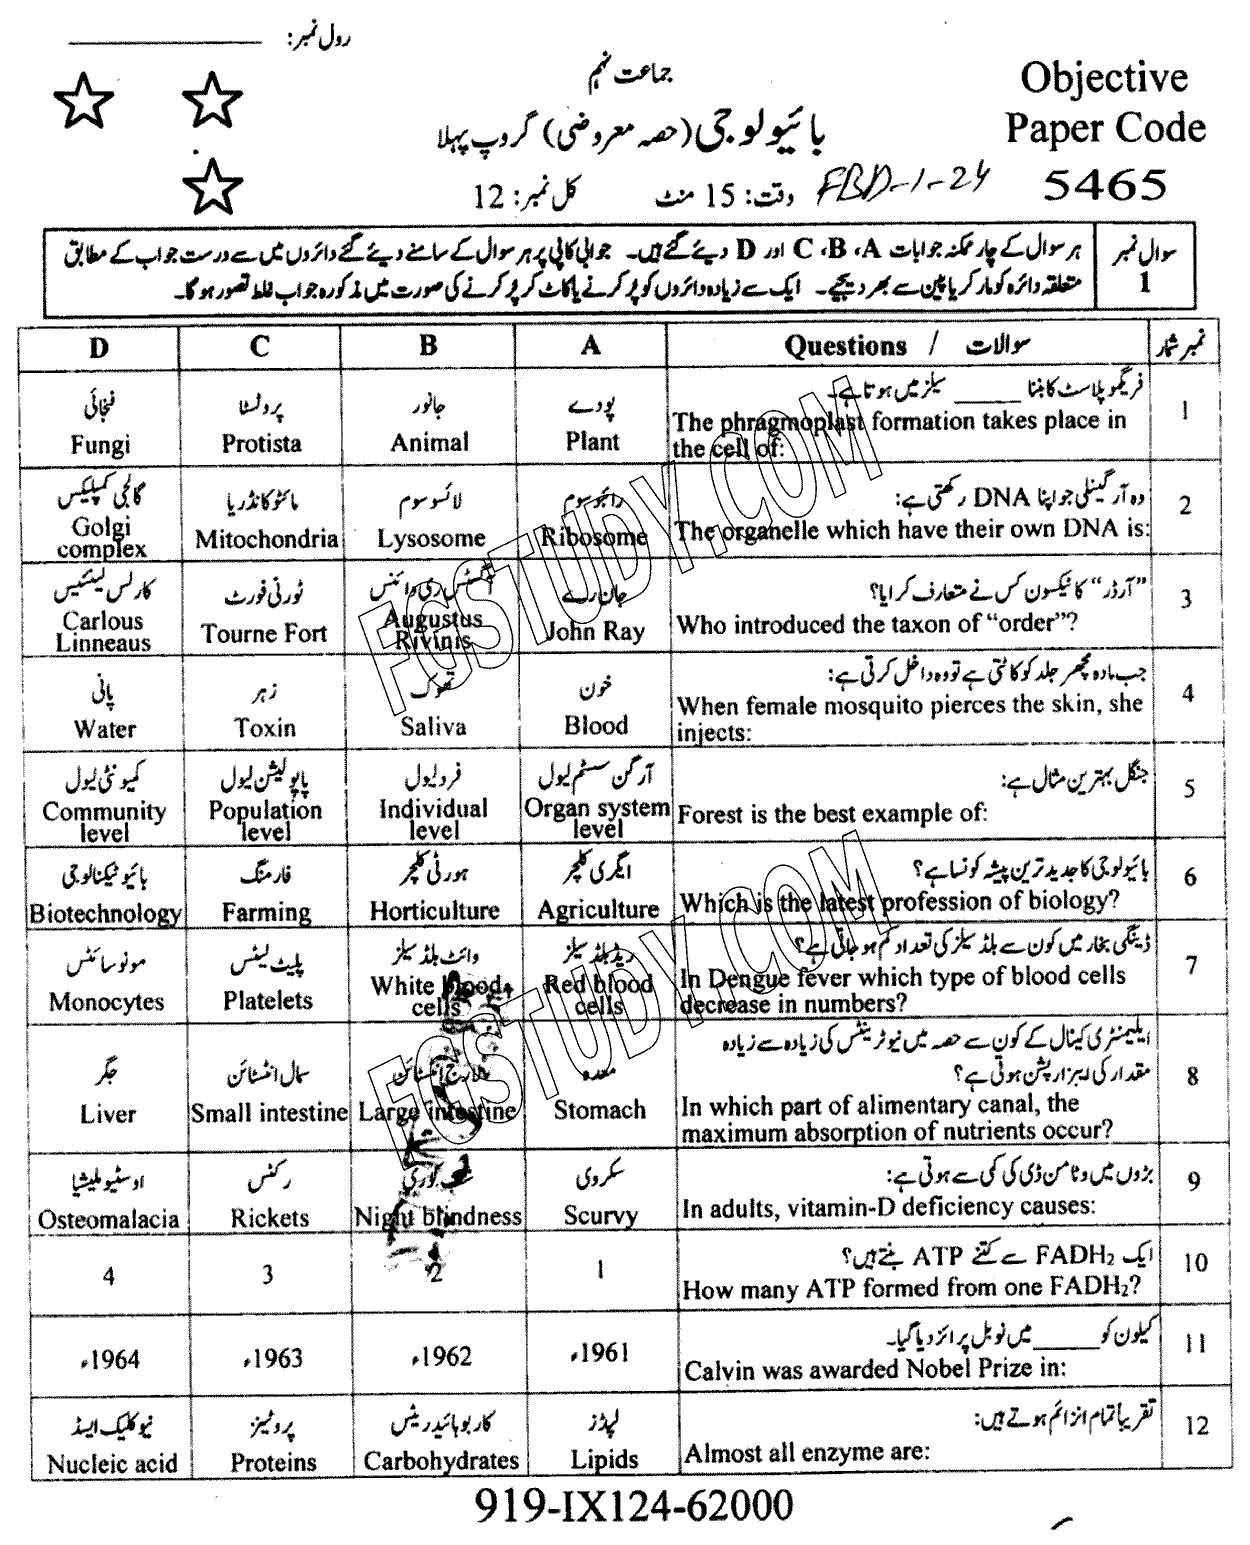 رول نمبر: ____________
جماعت نہم
بائیولوجی (حصہ معروضی) گروپ پہلا
وقت: 15 منٹ کل نمبر: 12
FBD-1-24
Objective
Paper Code
5465
سوال نمبر 1
ہر سوال کے چار ممکنہ جوابات A، B، C اور D دیئے گئے ہیں۔ جوابی کاپی پر ہر سوال کے سامنے دیئے گئے دائروں میں سے درست جواب کے مطابق
متعلقہ دائرہ کو مارکر یا پین سے بھر دیجیے۔ ایک سے زیادہ دائروں کو پُر کرنے یا کاٹ کر پُر کرنے کی صورت میں مذکورہ جواب غلط تصور ہوگا۔
نمبر شمار سوالات / Questions A B C D
1 فریگموپلاسٹ کا بننا _____ سیلز میں ہوتا ہے۔
The phragmoplast formation takes place in
the cell of:
پودے جانور پروٹسٹا فنجائی
Plant Animal Protista Fungi
2 وہ آرگنیلی جو اپنا DNA رکھتی ہے:
The organelle which have their own DNA is:
رائبوسوم لائسوسوم مائٹوکانڈریا گالجی کمپلیکس
Ribosome Lysosome Mitochondria Golgi
complex
3 "آرڈر" کا ٹیکسون کس نے متعارف کرایا؟
Who introduced the taxon of “order”?
جان رے آگسٹس ری وائنس ٹورنی فورٹ کارلس لینیئس
John Ray Augustus
Rivinis Tourne Fort Carlous
Linneaus
4 جب مادہ مچھر جلد کو کاٹتی ہے تو وہ داخل کرتی ہے:
When female mosquito pierces the skin, she
injects:
خون تھوک زہر پانی
Blood Saliva Toxin Water
5 جنگل بہترین مثال ہے:
Forest is the best example of:
آرگن سسٹم لیول فرد لیول پاپولیشن لیول کمیونٹی لیول
Organ system
level Individual
level Population
level Community
level
6 بائیولوجی کا جدید ترین پیشہ کونسا ہے؟
Which is the latest profession of biology?
ایگری کلچر ہورٹی کلچر فارمنگ بائیوٹیکنالوجی
Agriculture Horticulture Farming Biotechnology
7 ڈینگی بخار میں کون سے بلڈ سیلز کی تعداد کم ہو جاتی ہے؟
In Dengue fever which type of blood cells
decrease in numbers?
ریڈ بلڈ سیلز وائٹ بلڈ سیلز پلیٹ لیٹس مونوسائٹس
Red blood
cells White blood
cells Platelets Monocytes
8 ایلیمنٹری کینال کے کون سے حصہ میں نیوٹرینٹس کی زیادہ سے زیادہ
مقدار کی ایبزارپشن ہوتی ہے؟
In which part of alimentary canal, the
maximum absorption of nutrients occur?
معدہ لارج انٹسٹائن سمال انٹسٹائن جگر
Stomach Large intestine Small intestine Liver
9 بڑوں میں وٹامن ڈی کی کمی سے ہوتی ہے:
In adults, vitamin-D deficiency causes:
سکروی شب کوری رکٹس اوسٹیوملیشیا
Scurvy Night blindness Rickets Osteomalacia
10 ایک FADH₂ سے کتنے ATP بنتے ہیں؟
How many ATP formed from one FADH₂?
1 2 3 4
11 کیلون کو _____ میں نوبل پرائز دیا گیا۔
Calvin was awarded Nobel Prize in:
1961ء 1962ء 1963ء 1964ء
12 تقریباً تمام انزائم ہوتے ہیں:
Almost all enzyme are:
لپڈز کاربوہائیڈریٹس پروٹینز نیوکلیک ایسڈ
Lipids Carbohydrates Proteins Nucleic acid
919-IX124-62000
FGSTUDY.COM
FGSTUDY.COM